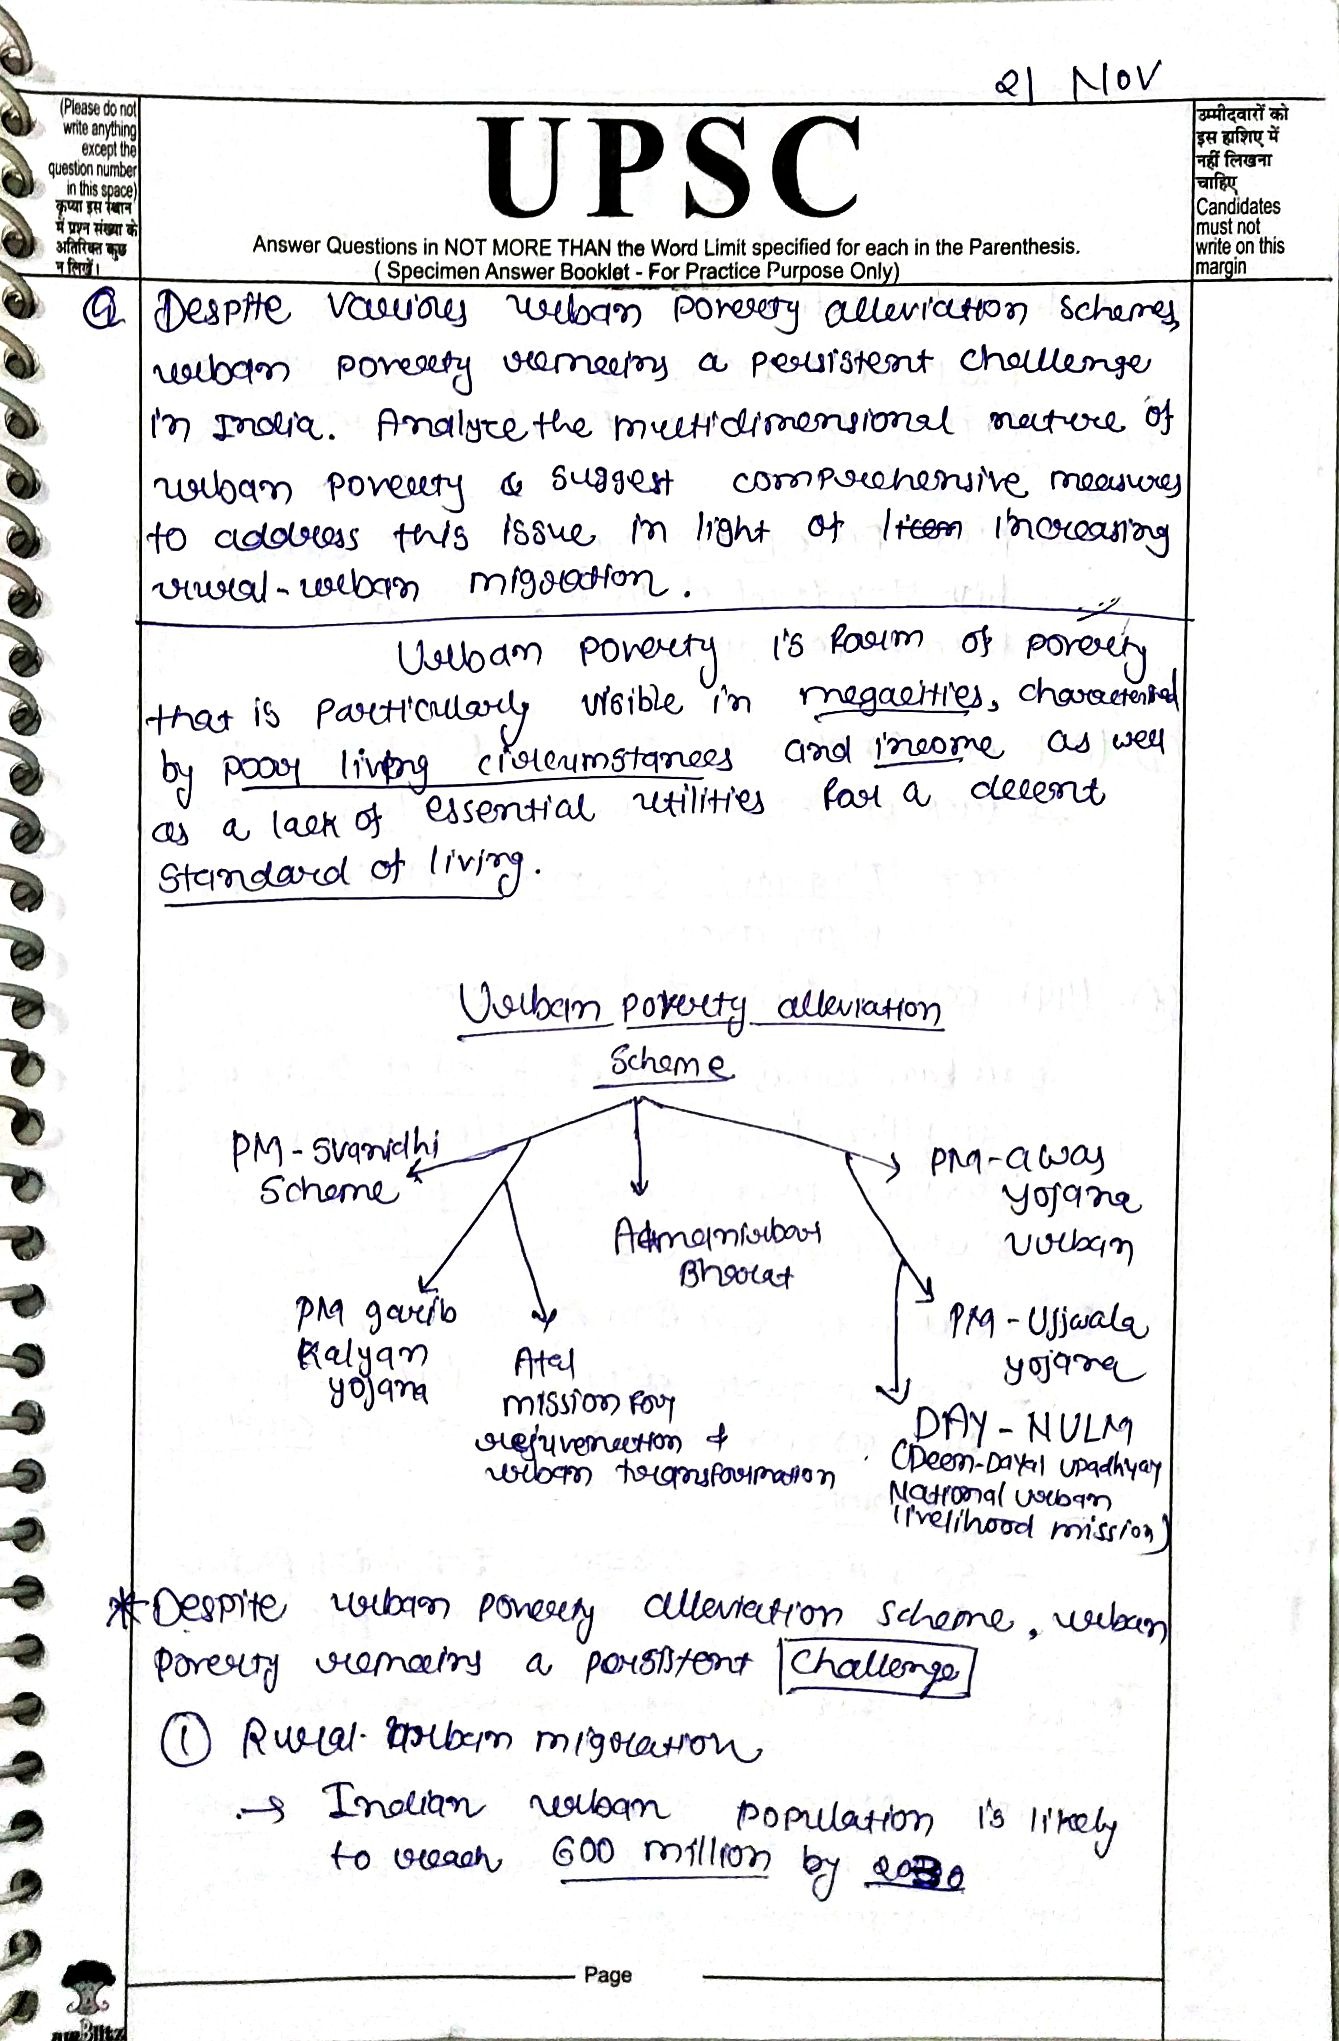 21 NOV
(Please do not
write anything
except the
question number
in this space)
कृप्या इस स्थान
में प्रश्न संख्या के
अतिरिक्त कुछ
न लिखें।
UPSC
Answer Questions in NOT MORE THAN the Word Limit specified for each in the Parenthesis.
( Specimen Answer Booklet - For Practice Purpose Only)
उम्मीदवारों को
इस हाशिए में
नहीं लिखना
चाहिए
Candidates
must not
write on this
margin
Q Despite various urban poverty alleviation schemes,
urban poverty remains a persistent challenge
in India. Analyze the multidimensional nature of
urban poverty & suggest comprehensive measures
to address this issue in light of increasing
rural-urban migration.
Urban poverty is form of poverty
that is particularly visible in megacities, characterised
by poor living circumstances and income as well
as a lack of essential utilities for a decent
standard of living.
Urban poverty alleviation
Scheme
PM-Svanidhi
Scheme
PM garib
Kalyan
yojana
Atal
mission for
rejuvenation &
urban transformation
Atmanirbhar
Bharat
PM-awas
yojana
urban
PM-Ujjwala
yojana
DAY-NULM
(Deen-Dayal Upadhyay
National urban
livelihood mission)
* Despite urban poverty alleviation scheme, urban
poverty remains a persistent challenge
① Rural-urban migration
→ Indian urban population is likely
to reach 600 million by 2030
Page